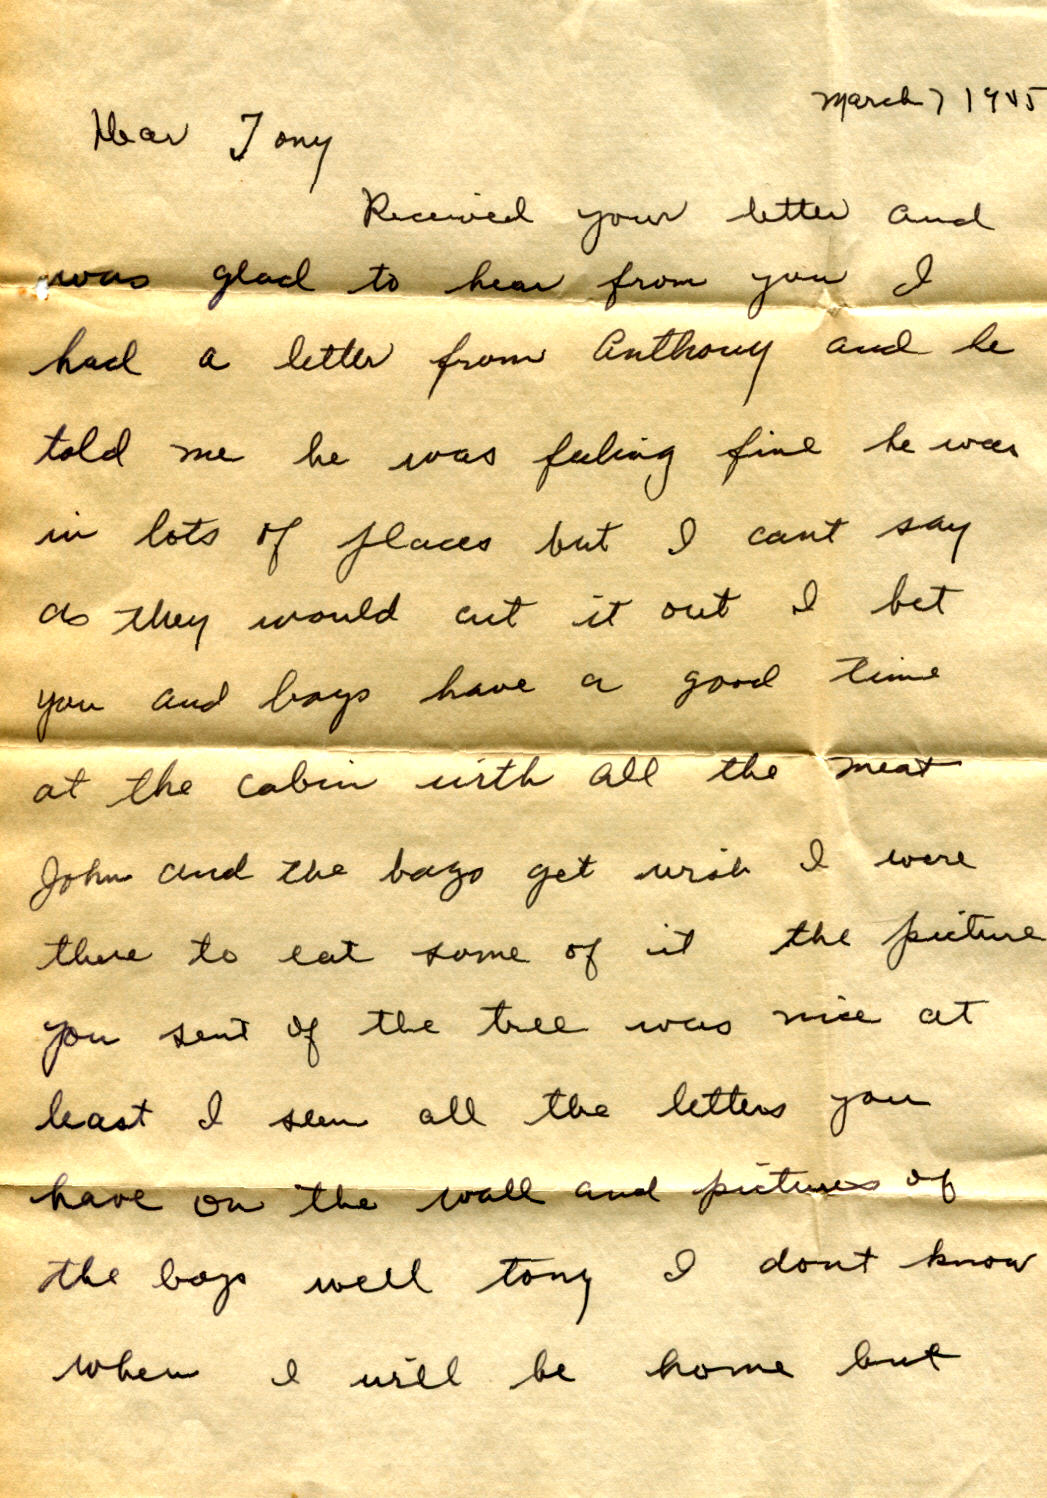 March 7 1945
Dear Tony
Received your letter and
was glad to hear from you I
had a letter from Anthony and he
told me he was feeling fine he was
in lots of places but I cant say
as they would cut it out I bet
you and boys have a good time
at the cabin with all the meat
John and the boys get wish I were
there to eat some of it the picture
you sent of the tree was nice at
least I seen all the letters you
have on the wall and pictures of
the boys well tony I dont know
when I will be home but